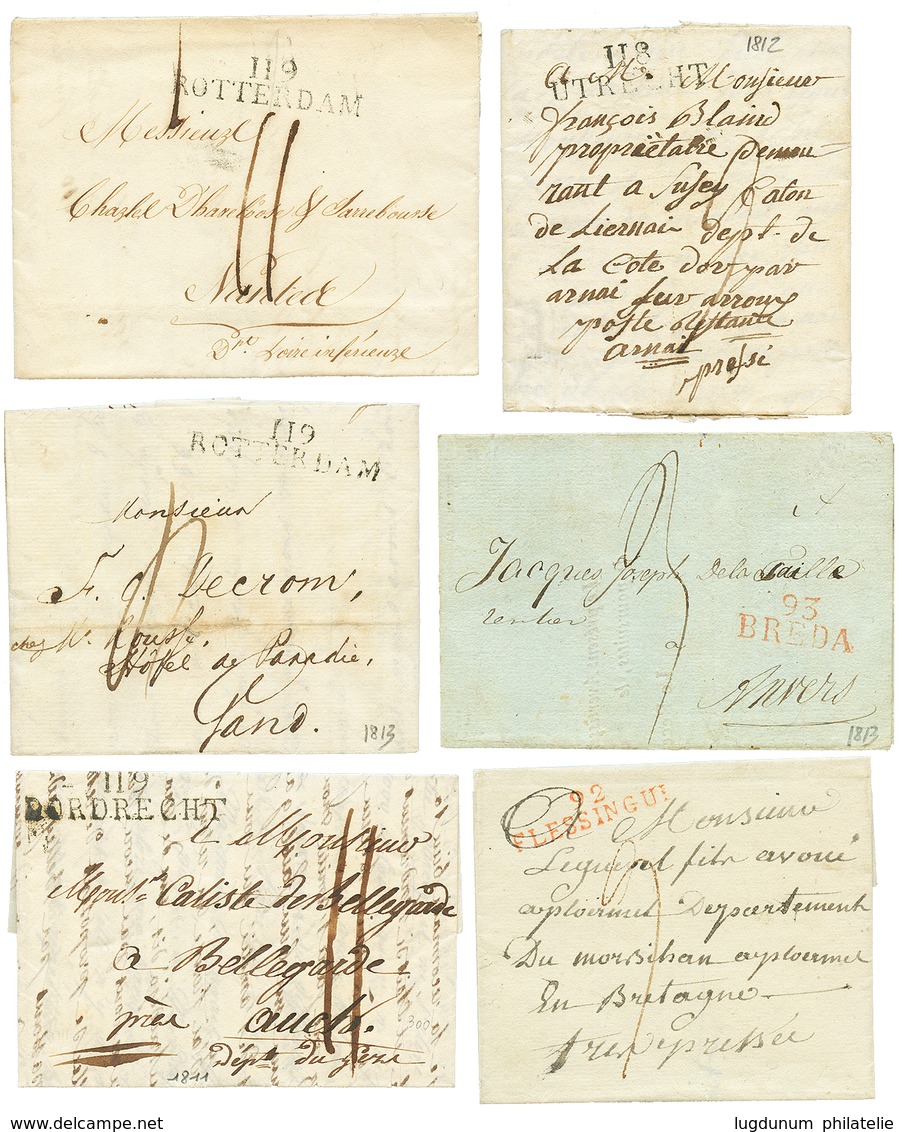 119
ROTTERDAM
Messieurs
Nantes
Dt. Loire inférieure
118
UTRECHT
1812
a M. Monsieur
françois Blaind
propriètaire demeu
rant a Susey Caton
de Liernai dept. de
La Cote dor par
arnai sur arroux
poste restante
arnai
pressé
119
ROTTERDAM
Monsieur
F. J. Decrom,
chez Mr. Rousse,
Hôtel de Paradie,
Gand.
1813
A
Jacques Joseph Dela
rentier
93
BREDA
a
Anvers
1813
119
DORDRECHT
a Monsieur
Caliste de Bellegarde
a Bellegarde
près auch.
Dépt. du gers
300
1811
92
FLESSINGUE
Monsieur
fils avoué
a ploermel Departement
Du morbihan a ploermel
En Bretagne
tres pressée
www.delcampe.net
lugdunum philatelie